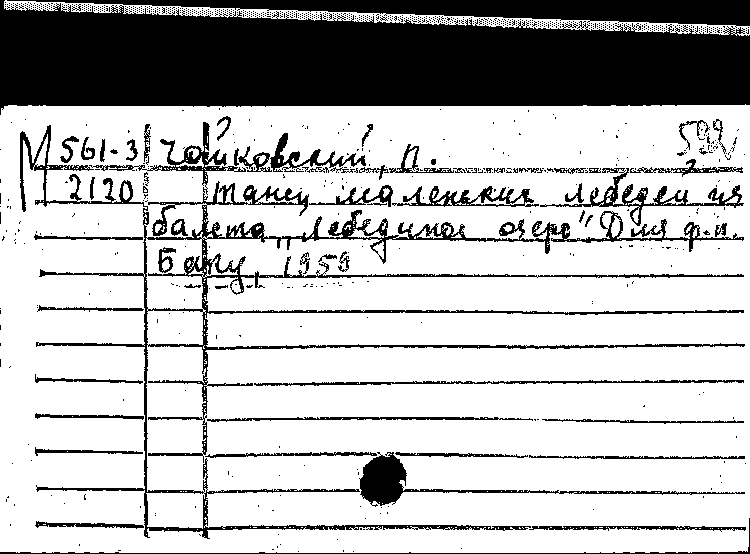 М 561-3 Чайковский, П. 592
2120 Танец маленьких лебедей из
балета „Лебединое озеро". Для ф.-п.
Баку, 1959